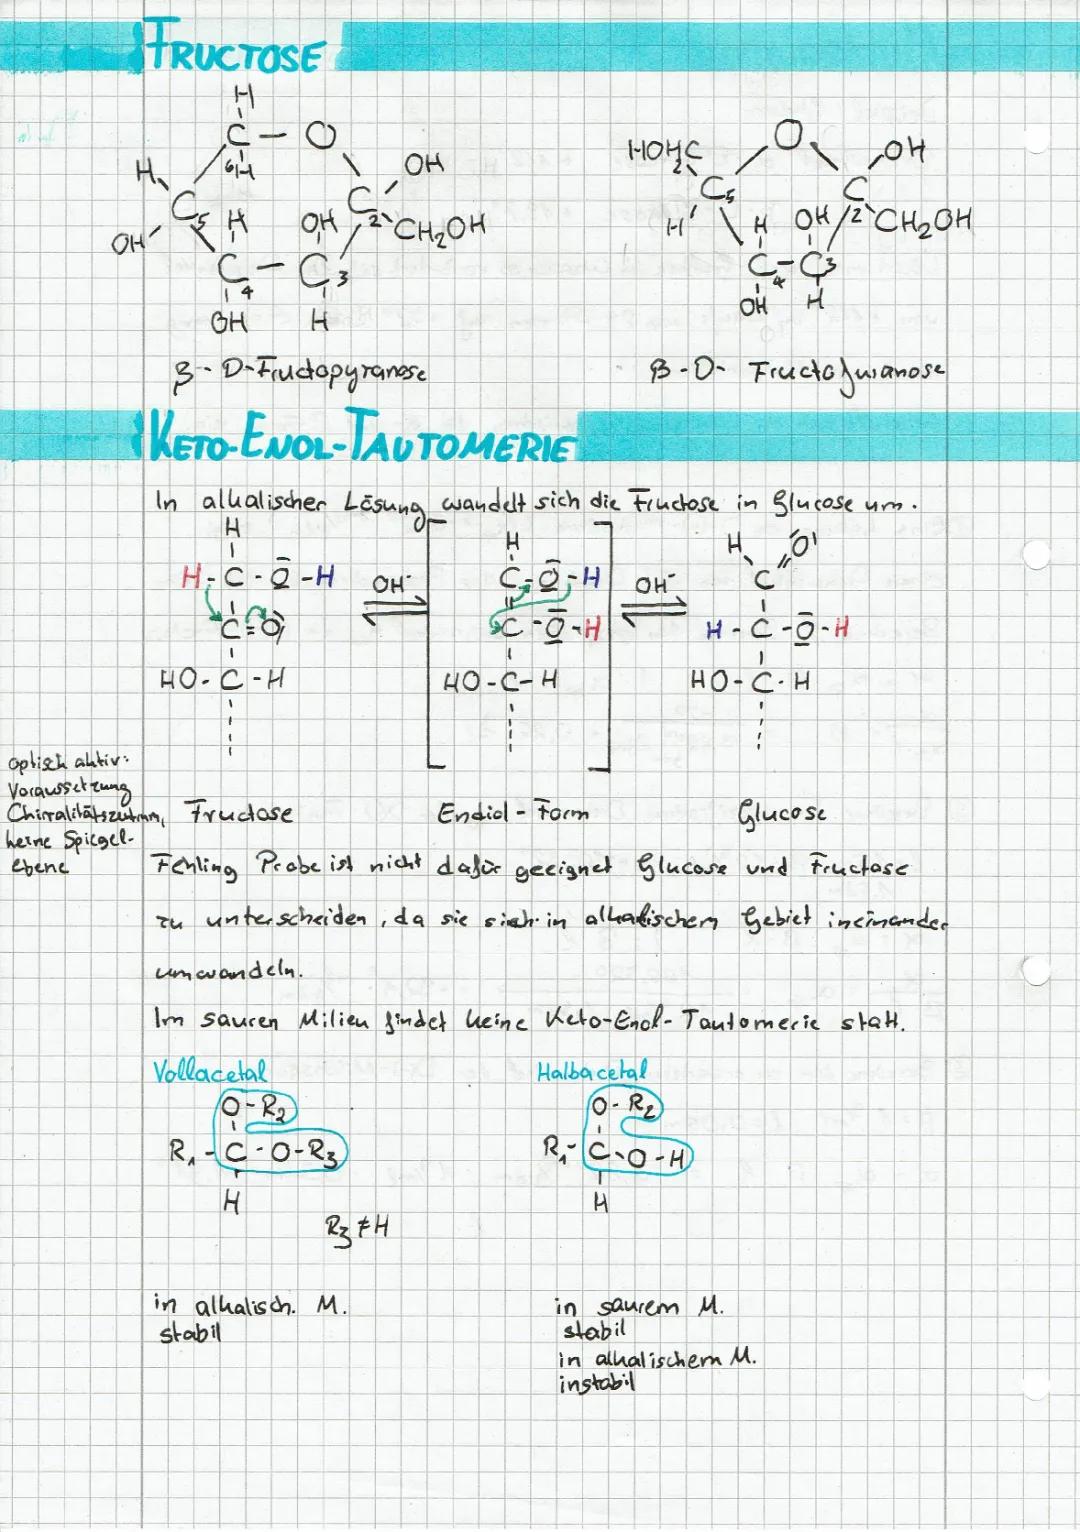 FRUCTOSE
H
C - O
6H
H
OH
C5
H
OH
C2
CH2OH
OH
C4
C3
OH
H
HOH2C
O
OH
C5
C2
H
H
OH
CH2OH
C4-C3
OH
H
β-D-Fructopyranose
β-D-Fructofuranose
KETO-ENOL-TAUTOMERIE
In alkalischer Lösung wandelt sich die Fructose in Glucose um.
H
H
H
O
H-C-O-H
OH-
C-O-H
OH-
C
C=O
C-O-H
H-C-O-H
HO-C-H
HO-C-H
HO-C-H
optisch aktiv:
Voraussetzung
Chiralitätszentrum,
keine Spiegel-
ebene
Fructose
Endiol-Form
Glucose
Fehling Probe ist nicht dafür geeignet Glucose und Fructose
zu unterscheiden, da sie sich in alkalischem Gebiet ineinander
umwandeln.
Im sauren Milieu findet keine Keto-Enol-Tautomerie statt.
Vollacetal
Halbacetal
O-R2
O-R2
R1-C-O-R3
R1-C-O-H
H
H
R3≠H
in alkalisch. M.
stabil
in saurem M.
stabil
in alkalischem M.
instabil